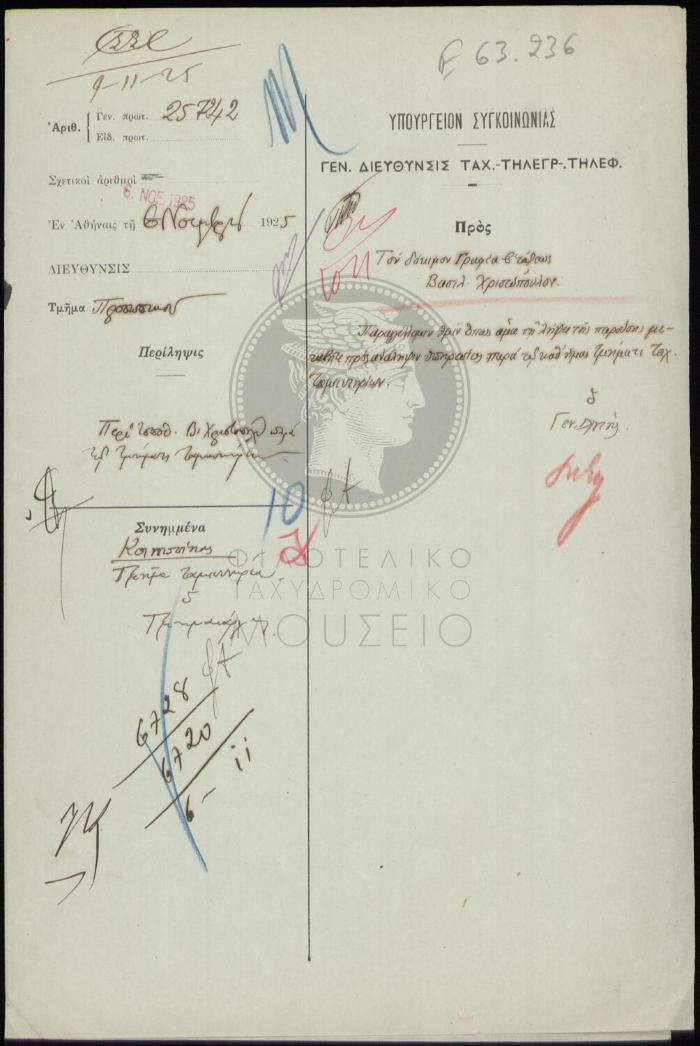 F 63.236
9-11-25
Ἀριθ. Γεν. πρωτ. 25742
Εἰδ. πρωτ.
Σχετικοὶ ἀριθμοὶ
6. ΝΟΕ 1925
Ἐν Ἀθήναις τῇ 6 Νοεμβρίου 1925
ΔΙΕΥΘΥΝΣΙΣ
Τμῆμα Προσωπικοῦ
Περίληψις
Περὶ τοποθ. Β. Χριστοπούλου παρὰ
τῷ τμήματι ταμιευτηρίων
10
Συνημμένα
Κοινοποίησις
Τμῆμα ταμιευτηρίων
ὁ
Τμηματάρχης
6728
6720
6-
ΥΠΟΥΡΓΕΙΟΝ ΣΥΓΚΟΙΝΩΝΙΑΣ
ΓΕΝ. ΔΙΕΥΘΥΝΣΙΣ ΤΑΧ.-ΤΗΛΕΓΡ-.ΤΗΛΕΦ.
Πρὸς
Τὸν δόκιμον Γραφέα β' τάξεως
Βασιλ. Χριστόπουλον.
Παραγγέλλομεν ὑμῖν ὅπως ἅμα τῇ λήψει τῆς παρούσης με-
ταβῆτε πρὸς ἀνάληψιν ὑπηρεσίας παρὰ τῷ καθ' ἡμᾶς τμήματι Ταχ.
Ταμιευτηρίων.
ὁ
Γεν. Δ/ντής.
ΦΙΛΟΤΕΛΙΚΟ
ΤΑΧΥΔΡΟΜΙΚΟ
ΜΟΥΣΕΙΟ